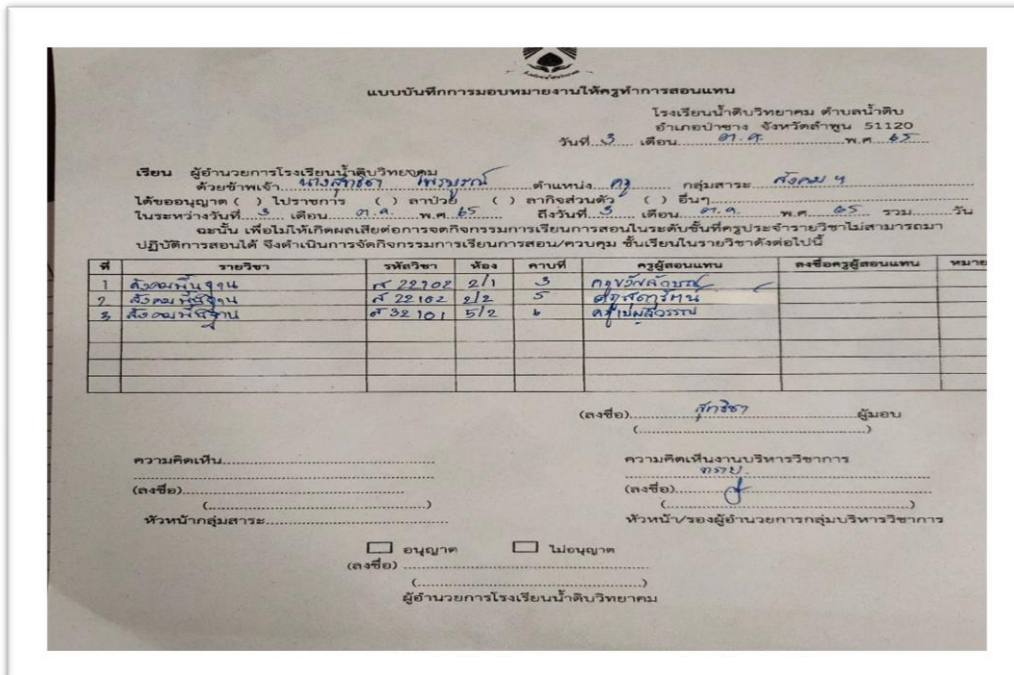 แบบบันทึกการมอบหมายงานให้ครูทำการสอนแทน
โรงเรียนน้ำดิบวิทยาคม ตำบลน้ำดิบ
อำเภอป่าซาง จังหวัดลำพูน 51120
วันที่ 3 เดือน ต.ค. พ.ศ 65
เรียน ผู้อำนวยการโรงเรียนน้ำดิบวิทยาคม
ด้วยข้าพเจ้า นางสุทธิชา เพรบูรณ์ ตำแหน่ง ครู กลุ่มสาระ สังคมฯ
ได้ขออนุญาต ( ) ไปราชการ ( ) ลาป่วย ( ) ลากิจส่วนตัว ( ) อื่นๆ
ในระหว่างวันที่ 3 เดือน ต.ค. พ.ศ. 65 ถึงวันที่ 3 เดือน ต.ค. พ.ศ. 65 รวม วัน
ฉะนั้น เพื่อไม่ให้เกิดผลเสียต่อการจดกิจกรรมการเรียนการสอนในระดับชั้นที่ครูประจำรายวิชาไม่สามารถมา
ปฏิบัติการสอนได้ จึงดำเนินการจัดกิจกรรมการเรียนการสอน/ควบคุม ชั้นเรียนในรายวิชาดังต่อไปนี้
ที่ รายวิชา รหัสวิชา ห้อง คาบที่ ครูผู้สอนแทน ลงชื่อครูผู้สอนแทน หมาย
1 สังคมพื้นฐาน ส 22102 2/1 3
2 สังคมพื้นฐาน ส 22102 2/2 5 ครูสุดารัตน์
3 สังคมพื้นฐาน ส 32101 5/2 6
(ลงชื่อ) สุทธิชา ผู้มอบ
(ความคิดเห็น
ความคิดเห็นงานบริหารวิชาการ
ทราบ
(ลงชื่อ)
(ลงชื่อ)
หัวหน้ากลุ่มสาระ
หัวหน้า/รองผู้อำนวยการกลุ่มบริหารวิชาการ
อนุญาต ไม่อนุญาต
(ลงชื่อ)
ผู้อำนวยการโรงเรียนน้ำดิบวิทยาคม